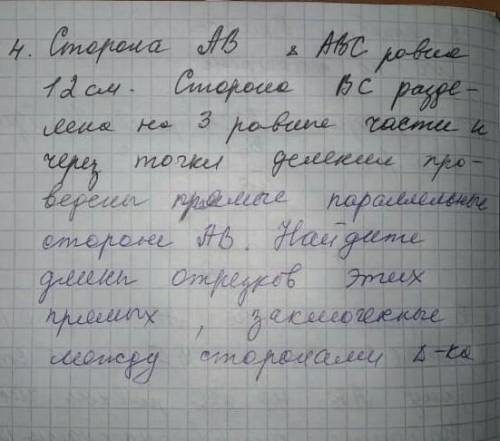 4. Сторона АВ △ АВС равна
12 см. Сторона ВС разде-
лена на 3 равные части и
через точки деления про-
ведены прямые параллельные
стороне АВ. Найдите
длины отрезков этих
прямых, заключенные
между сторонами △-ка